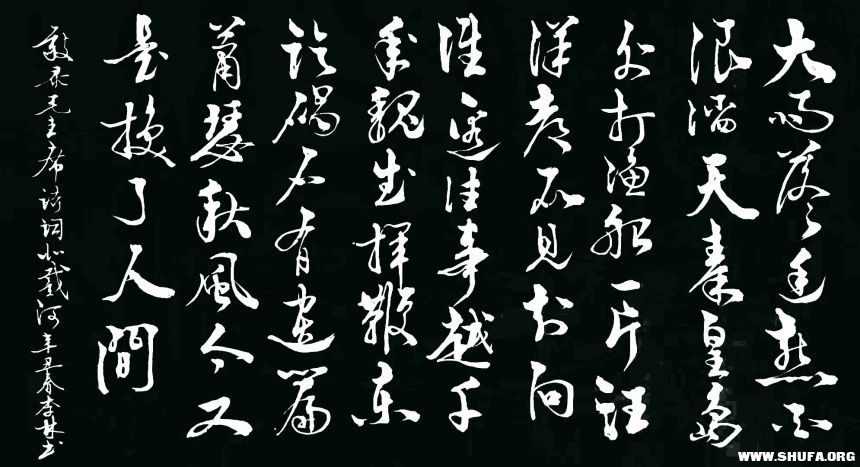 大雨落幽燕白
浪滔天秦皇岛
外打渔船一片汪
洋都不见知向
谁边往事越千
年魏武挥鞭东
临碣石有遗篇
萧瑟秋風今又
是换了人間
敬录毛主席诗词北戴河辛丑春李林书
WWW.SHUFA.ORG